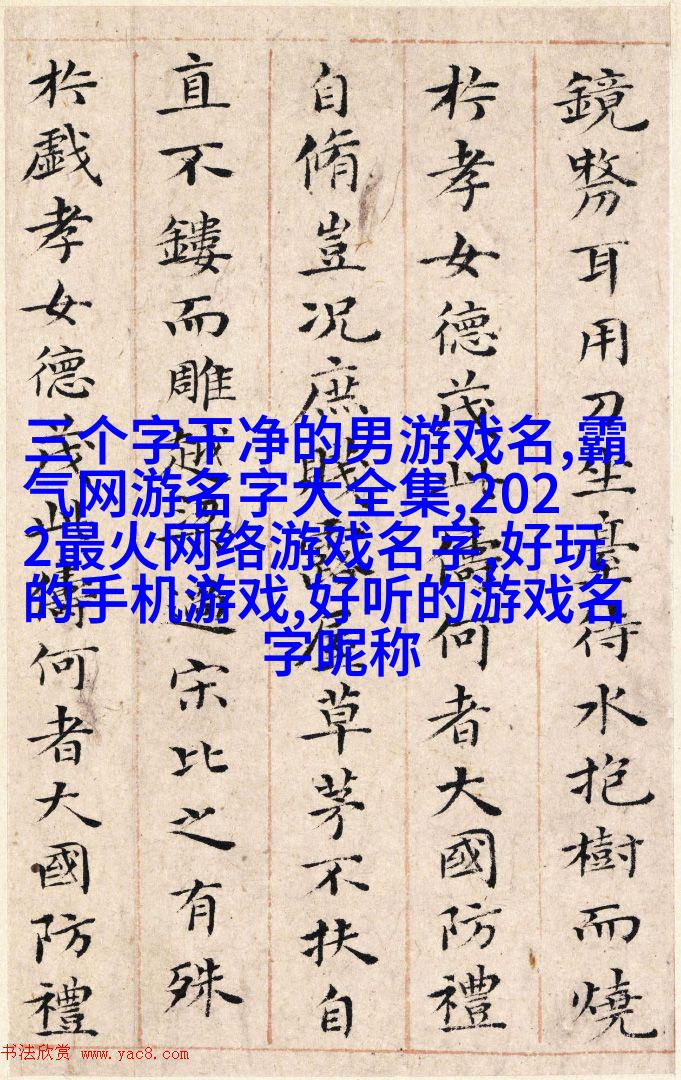 鏡剺耳用刀坐臺待水抱樹而燒
於孝女德茂此儔何者大國防禮
自脩豈况庶賤露屋草茅不扶自
直不鏤而雕越梁過宋比之有殊
於戲孝女德茂此儔何者大國防禮
三个字干净的男游戏名,霸
气网游名字大全集,202
2最火网络游戏名字,好玩
的手机游戏,好听的游戏名
字昵称
书法欣赏 www.yac8.com